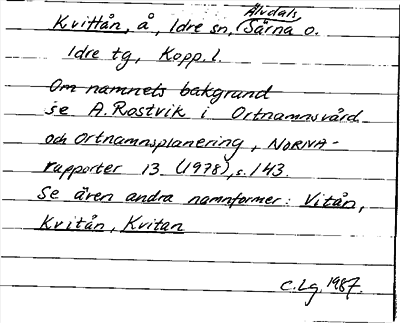 Kvittån, å, Idre sn, Älvdals, Särna o.
Idre tg, Kopp. l.
Om namnets bakgrund
se A. Rostvik i Ortnamnsvård
och ortnamnsplanering, NORNA-
rapporter 13 (1978), s. 143.
Se även andra namnformer: Vitån,
Kvitån, Kvitan
C. Lg. 1987.